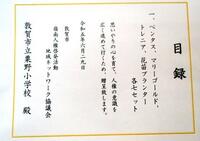 目録
一、ペンタス、マリーゴールド、
トレニア、花苗プランター
各七セット
思いやりの心を育て、人権の意識を
広く進めて行くため、贈呈致します。
令和五年六月二九日
敦賀市
嶺南人権啓発活動
地域ネットワーク協議会
敦賀市立粟野小学校 殿